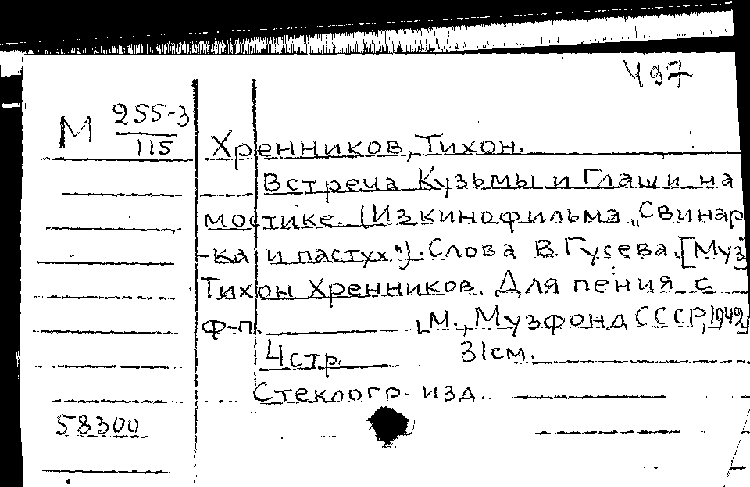 Ч97
М 255-3
115
Хренников, Тихон.
Встреча Кузьмы и Глаши на
мостике. (Из кинофильма „Свинар
-ка и пастух"). Слова В. Гусева. [Муз
Тихон Хренников. Для пения с
ф-п. [М., Музфонд СССР, 1949]
4 стр. 31 см.
Стеклогр. изд.
58300